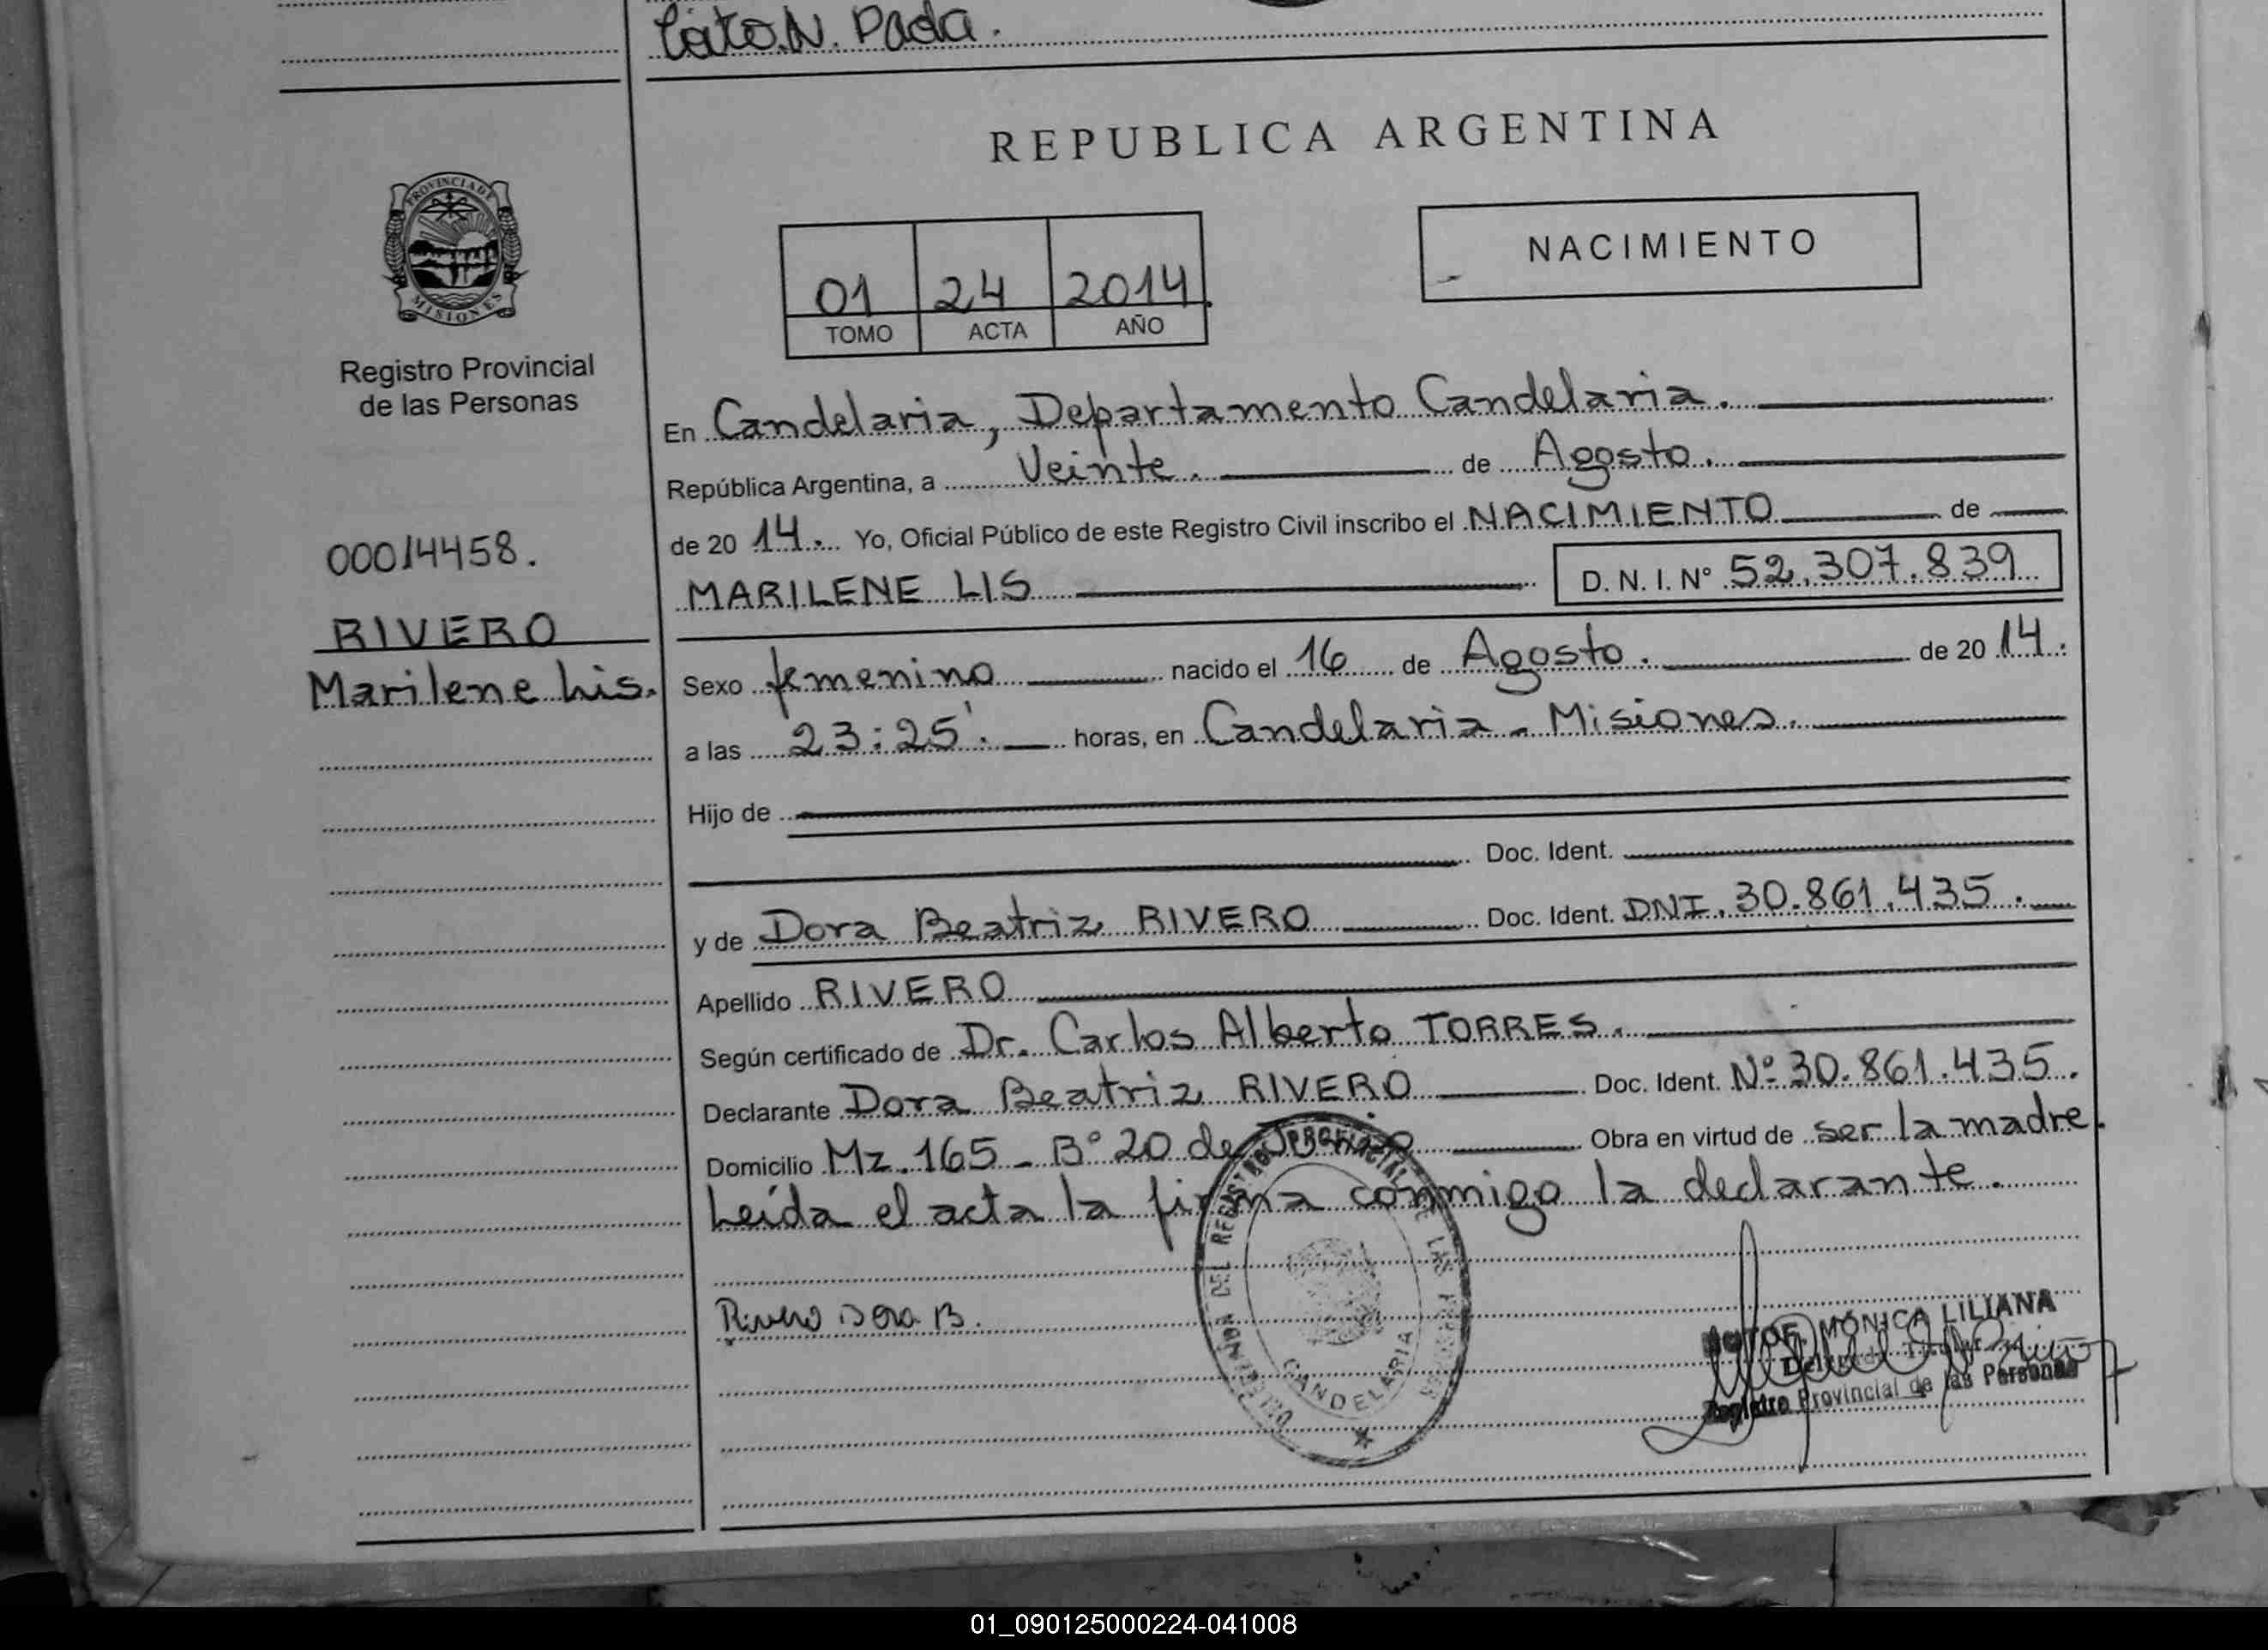 Cáto N. Dada.
REPUBLICA ARGENTINA
PROVINCIA DE
MISIONES
Registro Provincial
de las Personas
01 24 2014.
TOMO ACTA AÑO
NACIMIENTO
En Candelaria, Departamento Candelaria.
República Argentina, a Veinte. de Agosto.
de 20 14. Yo, Oficial Público de este Registro Civil inscribo el NACIMIENTO de
MARILENE LIS D. N. I. Nº 52.307.839
00014458.
RIVERO
Marilene Lis.
Sexo femenino nacido el 16 de Agosto. de 20 14.
a las 23:25'. horas, en Candelaria - Misiones.
Hijo de
Doc. Ident.
y de Dora Beatriz RIVERO Doc. Ident. DNI. 30.861.435.
Apellido RIVERO
Según certificado de Dr. Carlos Alberto TORRES.
Declarante Dora Beatriz RIVERO Doc. Ident. Nº 30.861.435.
Domicilio Mz. 165 - Bº 20 de Junio Obra en virtud de ser la madre.
Leída el acta la firma conmigo la declarante.
Rivero Dora B.
DEL REGISTRO PROVINCIAL DE LAS PERSONAS
CANDELARIA
MÓNICA LILIANA
Delegada Titular
Registro Provincial de las Personas
01_090125000224-041008